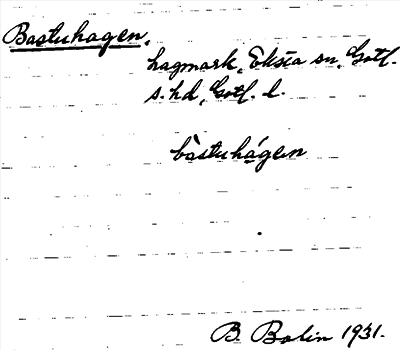 Bastuhagen,
hagmark, Eksta sn, Gotl.
s. hd, Gotl. l.
bàstuhágen
B. Bolin 1931.